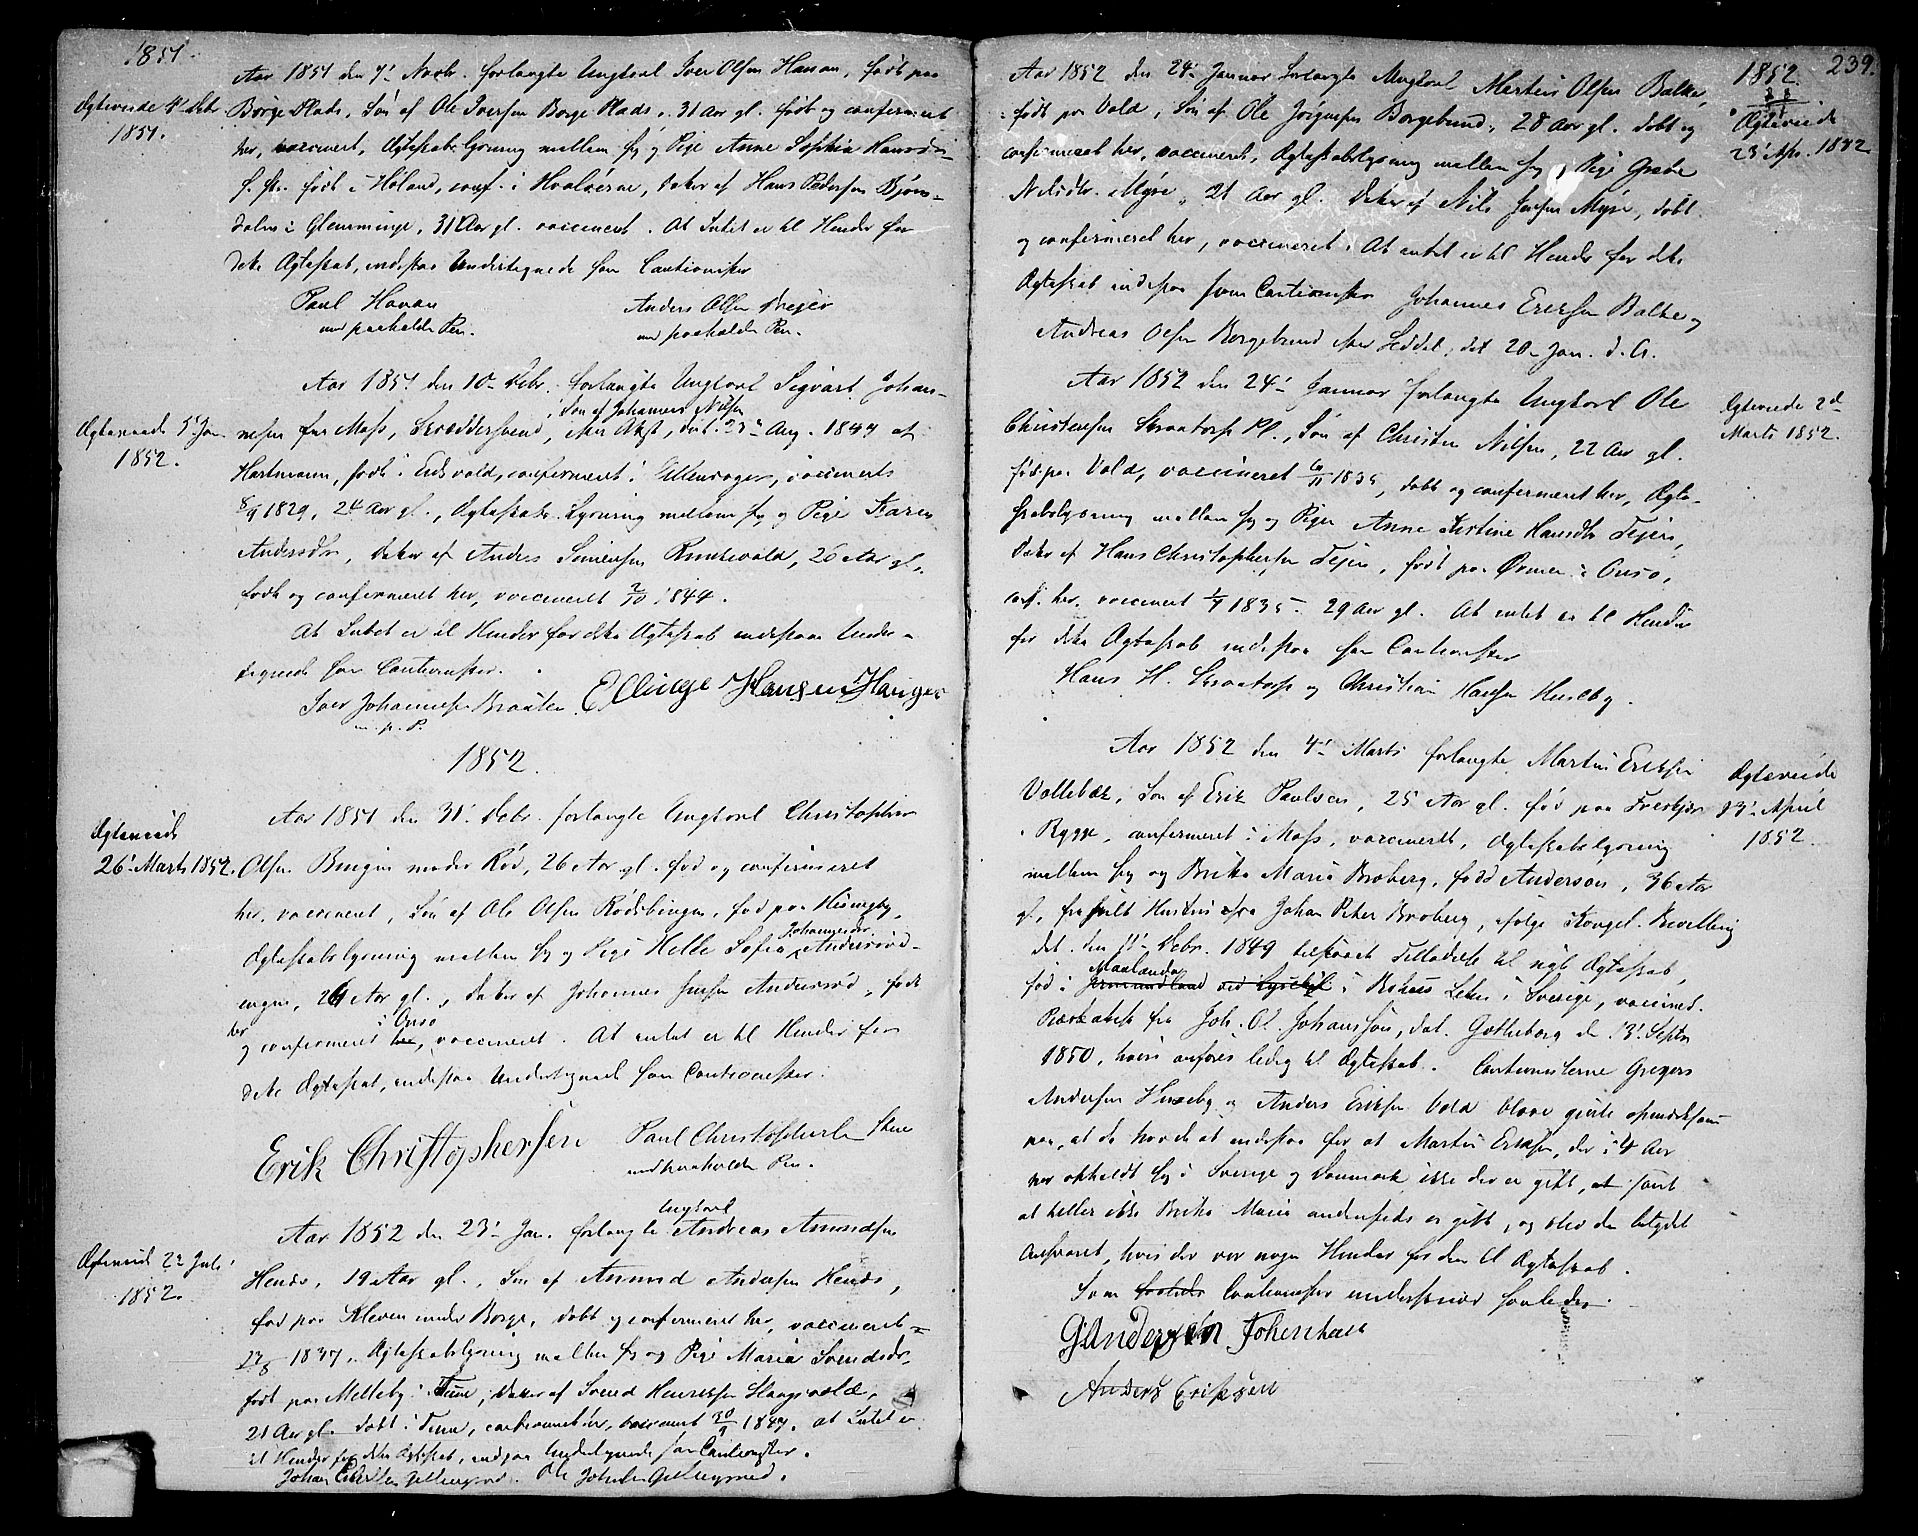 1851.
Aar 1851 den 7' Novbr. forlangte Ungkarl Iver Olsen Hauan, født paa
Ægteviede 4' Debr
1851.
Borge Plads, Søn af Ole Iversen Borge Plads, 31 Aar gl. født og confirmeret
her, vaccineret, Ægteskabslysning mellem sig og Pige Anne Sophia Hansdr
født i Høland, conf. i Hvaløerne, Datter af Hans Pedersen Bjørn-
dalen i Glemminge, 31 Aar gl. vaccineret. At Intet er til Hinder for
dette Ægteskab, indestaae Undertegnede som Cautionister
Paul Hauan
Anders Olsen
med paaholden Pen.
med paaholden Pen.
Aar 1851 den 10' Debr. forlangte Ungkarl Sigvart Johan-
Søn af Johannes Nilsen
Ægteviede 5' Jan
1852.
nesen fra Moss, Skræddersvend, efter Attest, dat. 23' Aug. 1847 af
Hartmann, født i Eidsvold, confirmeret i Ullensager, vaccineret
8/9 1829, 24 Aar gl., Ægteskabs Lysning mellem sig og Pige Karen
Andersdr, Datter af Anders Simensen, 26 Aar gl.,
født og confirmeret her, vaccineret 2/10 1844.
At Intet er til Hinder for dette Ægteskab indestaae Under-
tegnede som Cautionister.
Iver Johannesen Braaten Ellinge Hansen Hauger
m. p. P.
1852.
Aar 1851 den 31' Debr. forlangte Ungkarl Christopher
Ægteviede
26' Marts 1852.
Olsen Bingen under Rød, 26 Aar gl. fød og confirmeret
her, vaccineret, Søn af Ole Olsen Rødsbingen, fød paa
Johannesdr
Ægteskabslysning mellem sig og Pige Helle Sofia Andersrød-
engen, 24 Aar gl., Datter af Johannes Jensen Andersrød, født
her
i Onsø
og confirmeret her, vaccineret. At intet er til Hinder for
dette Ægteskab, indestaae Undertegnede som Cautionister.
Erik Christophersen
Paul Christophersen
med paaholden Pen.
Ungkarl
Aar 1852 den 23' Jan. forlangte Andreas Amundsen
Ægteviede 22 Juli
1852.
19 Aar gl., Søn af Amund Andersen
fød paa Kleven under Borge, døbt og confirmeret her, vaccineret
1837, Ægteskabslysning mellem sig og Pige Maria Svendsdr,
født paa Melleby i Tune, Datter af Svend Henriksen Haugsvold,
21 Aar gl. døbt i Tune, confirmeret her, vaccineret 30/9 1847. At Intet er
til Hinder for dette Ægteskab, indestaae Undertegnede som Cautionister.
239.
1852.
Aar 1852 den 24' Januar forlangte Ungkarl Martin Olsen Balke,
Ægteviede
23' Apr. 1852
født paa Vold, Søn af Ole Jørgensen Borgebund, 28 Aar gl. døbt og
confirmeret her, vaccineret, Ægteskabslysning mellem sig og Pige Grethe
Nilsdtr. Myre, 21 Aar gl. Datter af Nils Jensen Myre, døbt
og confirmeret her, vaccineret. At intet er til Hinder for dette
Ægteskab indestaae som Cautionister Johannes Eriksen Balke og
Andreas Olsen Borgebund efter Seddel, dat 20 Jan. d. A.
Aar 1852 den 24' Januar forlangte Ungkarl Ole
Ægteviede 2d
Marts 1852.
Christensen Skraatorp Pl., Søn af Christen Nilsen, 22 Aar gl.
født paa Vold, vaccineret 6/11 1835, døbt og confirmeret her, Ægte-
skabslysning mellem sig og Pigen Anne Kirstine Hansdtr Tejeri,
Datter af Hans Christophersen Tejeri, født paa i Onsø,
conf. her. vaccineret 1835. 29 Aar gl. At intet er til Hinder
for dette Ægteskab indestaae som Cautionister
Hans H. Skraatorp og Christian Hansen Huseby.
Aar 1852 den 4' Marts forlangte Martin Eriksen
Ægteviede
13' April
1852.
Vallebæk, Søn af Erik Paulsen, 25 Aar gl. fød paa
i Rygge, confirmeret i Moss, vaccineret, Ægteskabslysning
mellem sig og Brita Maria Broberg, født Anderson, 36 Aar
gl., fraskilt Hustru fra Johan Peter Broberg, ifølge Kongel. Bevilling
dat. den 11' Debr. 1849 tilstaaet Tilladelse til nyt Ægteskab,
Maalanda
fød i ved Lysekil i Bohus Lehn i Sverige, vaccined.
Præsteattest fra Joh. Ol. Johansson, dat. Gøtheborg d. 13' Septbr
1850, hvori anføres ledig til Ægteskab. Cautionisterne Gregers
Andersen Huseby og Anders Eriksen Vold bleve gjorte opmærksom
paa, at de havde at indestaae for at Martin Eriksen, der i 4 Aar
har opholdt sig i Sverige og Danmark ikke der er gift, at samt
at heller ikke Brita Maria andensteds er gift, og blev dem betydet
Ansvaret, hvis der var nogen Hinder for dem til Ægteskab.
Som Cautionister underskrive saaledes.
G Andersen
Anders Eriksen